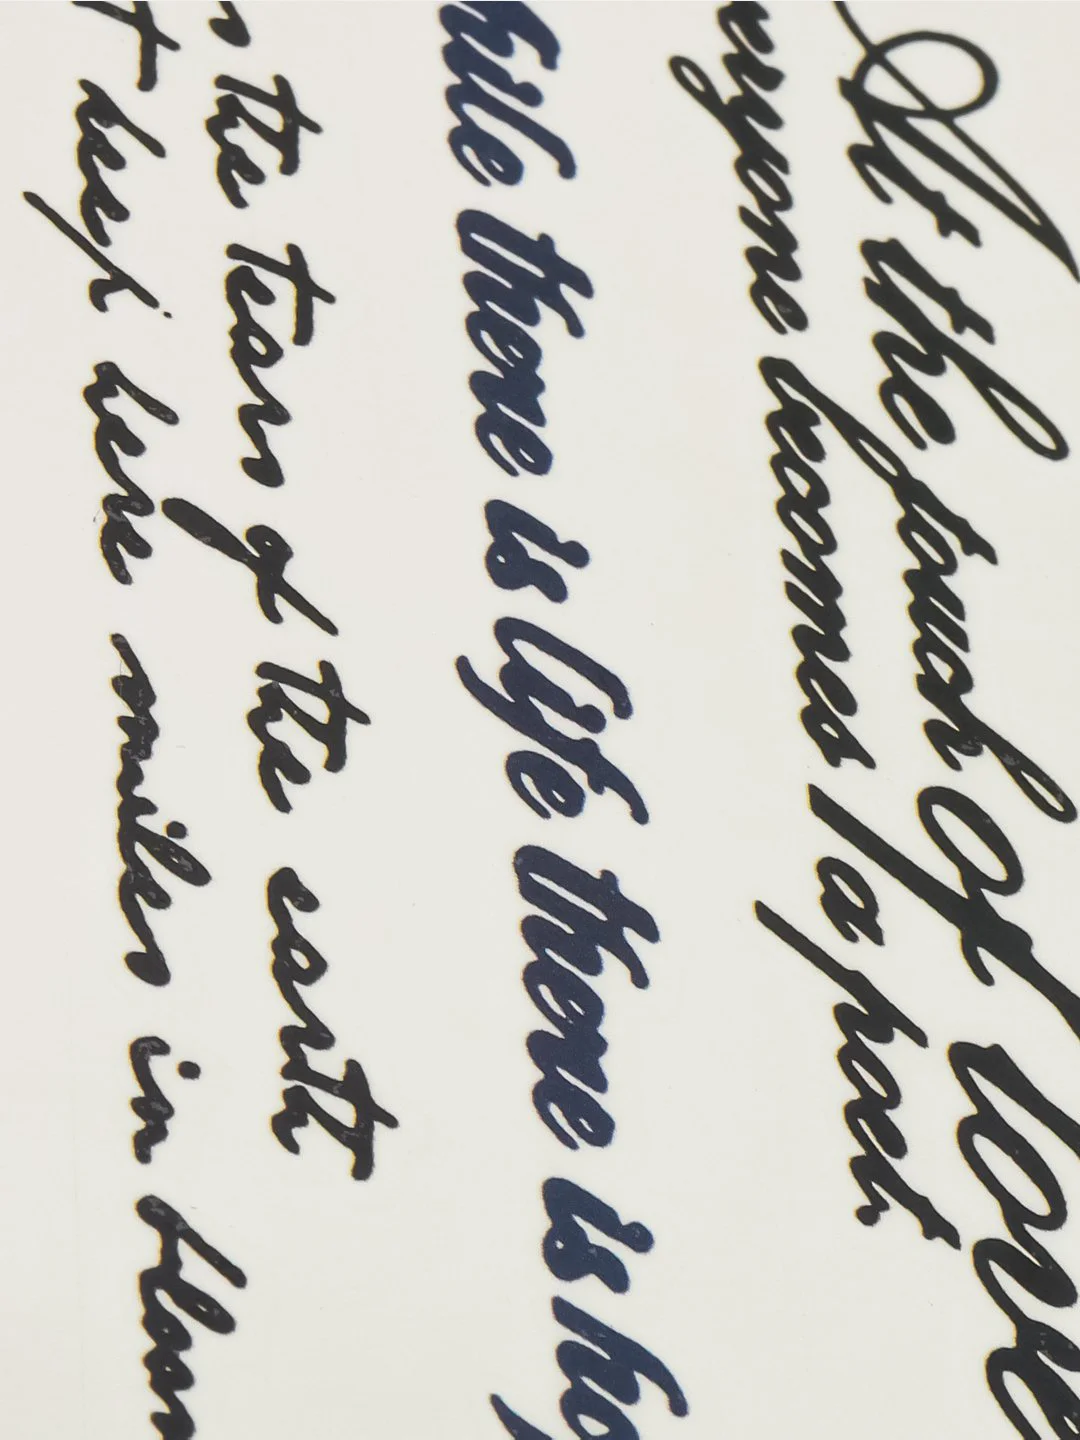 At the touch Of love
eryone becomes a poet.
hile there is life there is ho
the tears of the earth
t keep here smiles in bloo